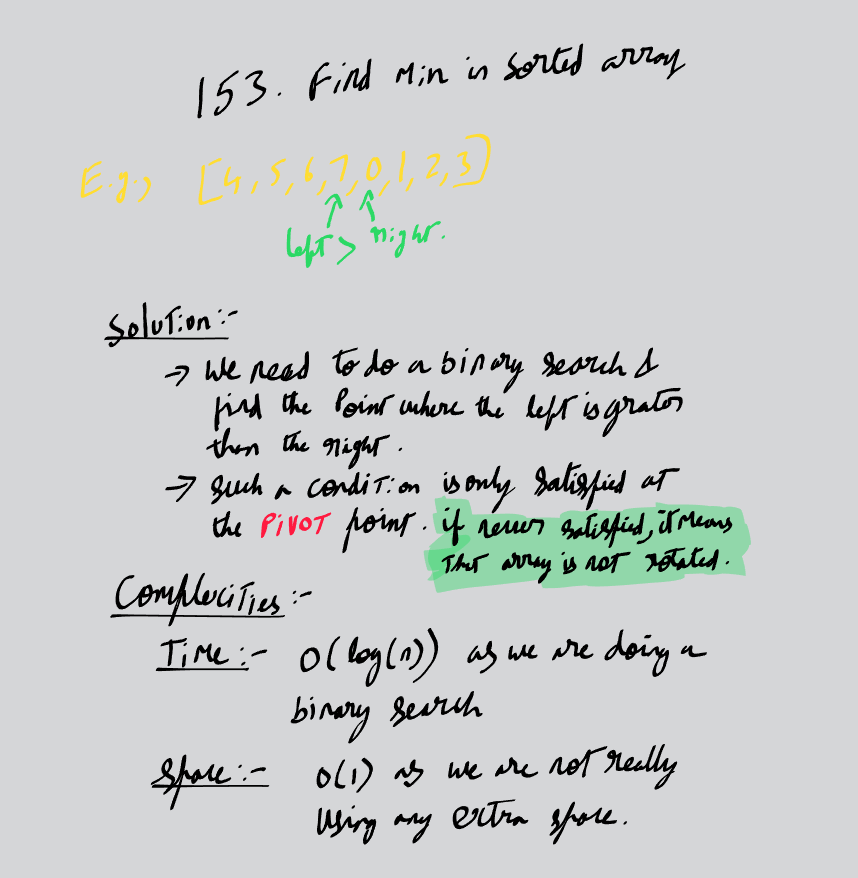 153. Find Min in sorted array
E.g., [4, 5, 6, 7, 0, 1, 2, 3]
left > right.
Solution :-
→ We need to do a binary search &
find the point where the left is grater
than the right.
→ such a condition is only satisfied at
the PIVOT point. if never satisfied, it means
that array is not rotated.
Complecities :-
Time :- O(log(n)) as we are doing a
binary search
Space :- O(1) as we are not really
using any extra space.